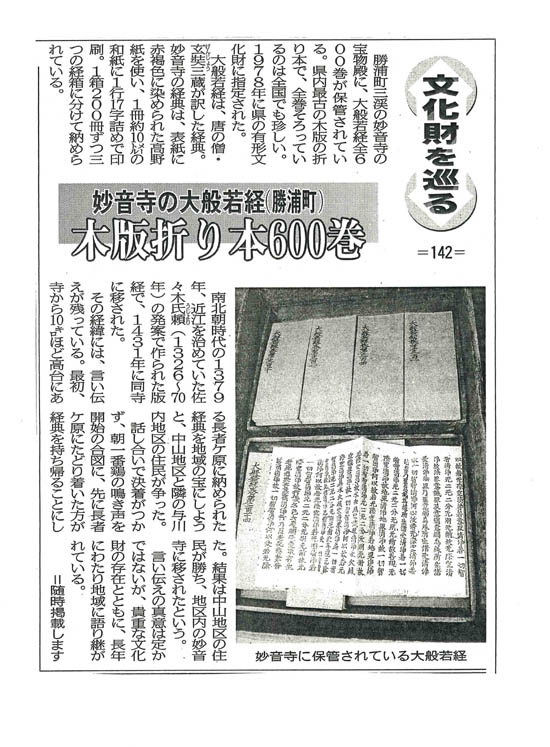 文化財を巡る
=142=
妙音寺の大般若経(勝浦町)
木版折り本600巻
勝浦町三渓の妙音寺の
宝物殿に、大般若経全6
00巻が保管されてい
る。県内最古の木版の折
り本で、全巻そろってい
るのは全国でも珍しい。
1978年に県の有形文
化財に指定された。
大般若経は、唐の僧・
玄奘三蔵が訳した経典。
妙音寺の経典は、表紙に
赤褐色に染められた高野
紙を使い、1冊約10㍍の
和紙に1行17字詰めで印
刷。1箱200冊ずつ三
つの経箱に分けて納めら
れている。
南北朝時代の1379
年、近江を治めていた佐
々木氏頼(1326〜70
年)の発案で作られた版
経で、1431年に同寺
に移された。
その経緯には、言い伝
えが残っている。最初、
寺から10㌔ほど高台にあ
る長者ケ原に納められた
経典を地域の宝にしよう
と、中山地区と隣の与川
内地区の住民が争った。
話し合いで決着がつか
ず、朝一番鶏の鳴き声を
開始の合図に、先に長者
ケ原にたどり着いた方が
経典を持ち帰ることにし
た。結果は中山地区の住
民が勝ち、地区内の妙音
寺に移されたという。
言い伝えの真意は定か
ではないが、貴重な文化
財の存在とともに、長年
にわたり地域に語り継が
れている。
=随時掲載します
妙音寺に保管されている大般若経